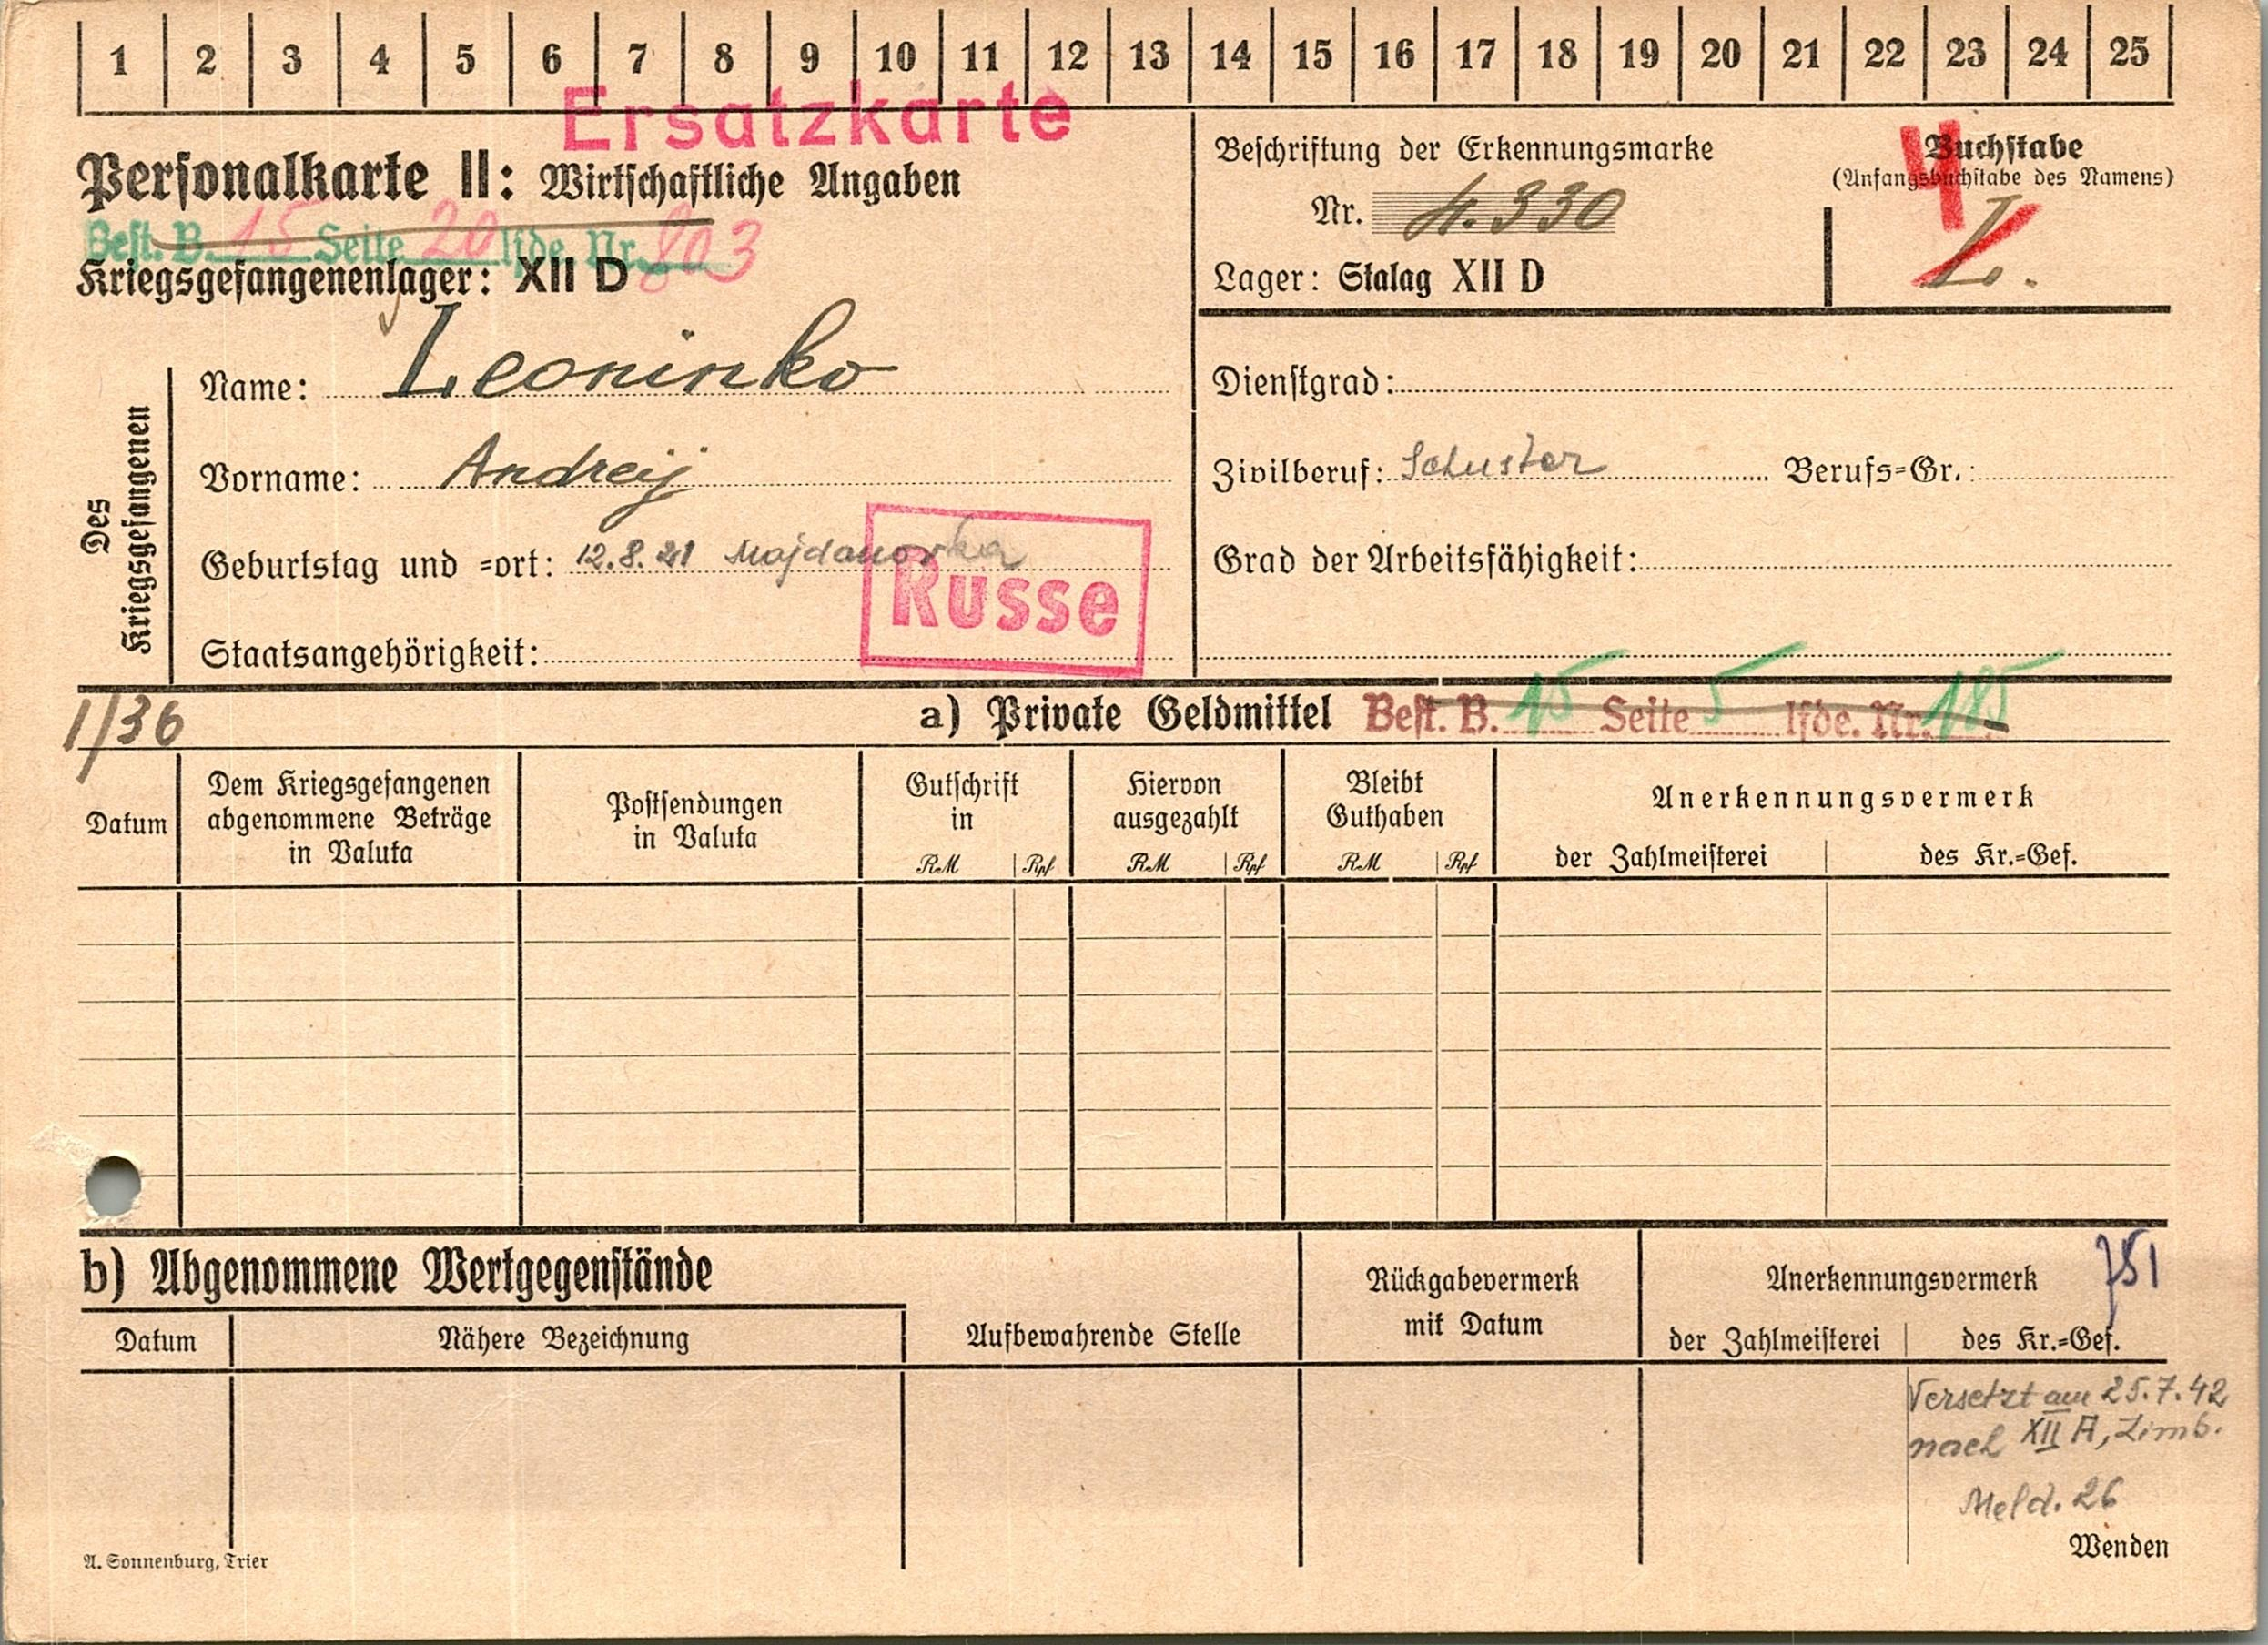 1 2 3 4 5 6 7 8 9 10 11 12 13 14 15 16 17 18 19 20 21 22 23 24 25
Ersatzkarte
Personalkarte II: Wirtschaftliche Angaben
Best. B. 15 Seite 20 lfde. Nr. 803
Kriegsgefangenenlager: XII D
Beschriftung der Erkennungsmarke
Nr. 4.330
Lager: Stalag XII D
Buchstabe
(Anfangsbuchstabe des Namens)
4
L.
Des Kriegsgefangenen
Name: Leoninko
Vorname: Andreij
Geburtstag und =ort: 12.8.21 Majdanovka
Staatsangehörigkeit:
Russe
Dienstgrad:
Zivilberuf: Schuster Berufs=Gr.:
Grad der Arbeitsfähigkeit:
1/36
a) Private Geldmittel Best. B. 15 Seite 5 lfde. Nr. 185
Datum
Dem Kriegsgefangenen
abgenommene Beträge
in Valuta
Postsendungen
in Valuta
Gutschrift
in
RM Rpf
Hiervon
ausgezahlt
RM Rpf
Bleibt
Guthaben
RM Rpf
Anerkennungsvermerk
der Zahlmeisterei des Kr.=Gef.
b) Abgenommene Wertgegenstände
Datum Nähere Bezeichnung
Aufbewahrende Stelle
Rückgabevermerk
mit Datum
Anerkennungsvermerk
751
der Zahlmeisterei des Kr.=Gef.
Versetzt am 25.7.42
nach XII A, Limb.
Meld. 26
Wenden
A. Sonnenburg, Trier